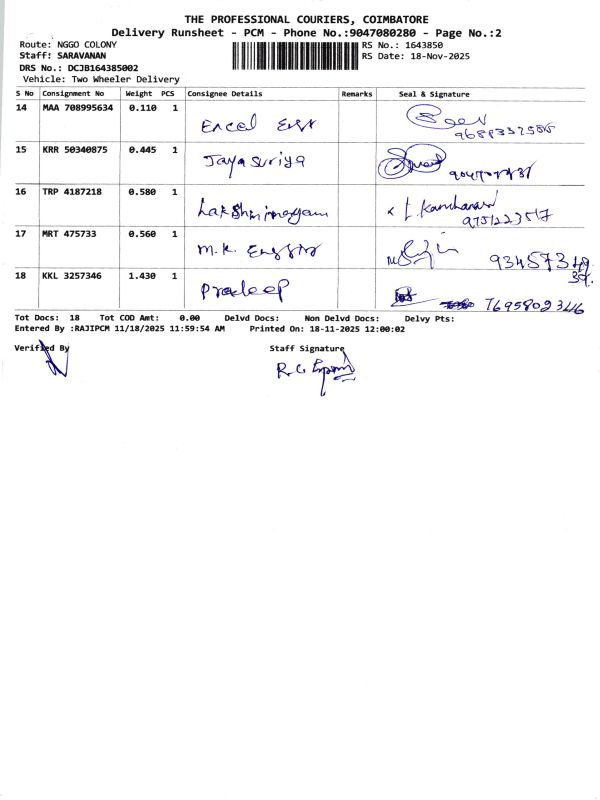 THE PROFESSIONAL COURIERS, COIMBATORE
Delivery Runsheet - PCM - Phone No.:9047080280 - Page No.:2
Route: NGGO COLONY RS No.: 1643850
Staff: SARAVANAN RS Date: 18-Nov-2025
DRS No.: DCJB164385002
Vehicle: Two Wheeler Delivery
S No Consignment No Weight PCS Consignee Details Remarks Seal & Signature
14 MAA 708995634 0.110 1
15 KRR 50340875 0.445 1 Jayasuriya
16 TRP 4187218 0.580 1
9751223517
17 MRT 475733 0.560 1 M.K.
18 KKL 3257346 1.430 1 Pradeep
Tot Docs: 18 Tot COD Amt: 0.00 Delvd Docs: Non Delvd Docs: Delvy Pts:
Entered By :RAJIPCM 11/18/2025 11:59:54 AM Printed On: 18-11-2025 12:00:02
Verified By Staff Signature